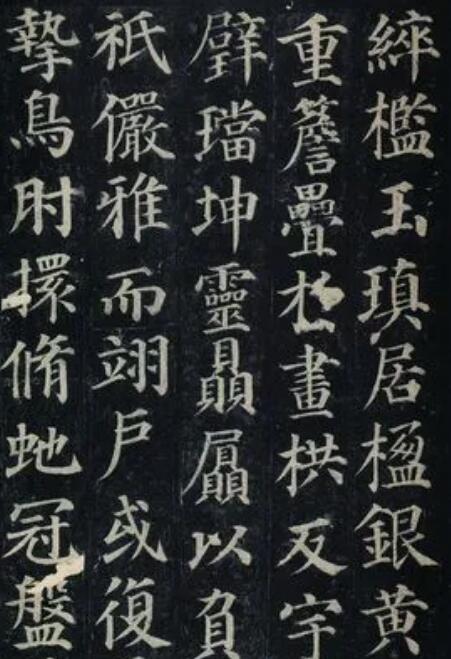 綷檻玉瑱居楹銀黃
重簷疊扵畫栱反宇
璧璫坤靈贔屭以負
祇儼雅而翊戶或復
摯鳥肘擐脩虵冠盤